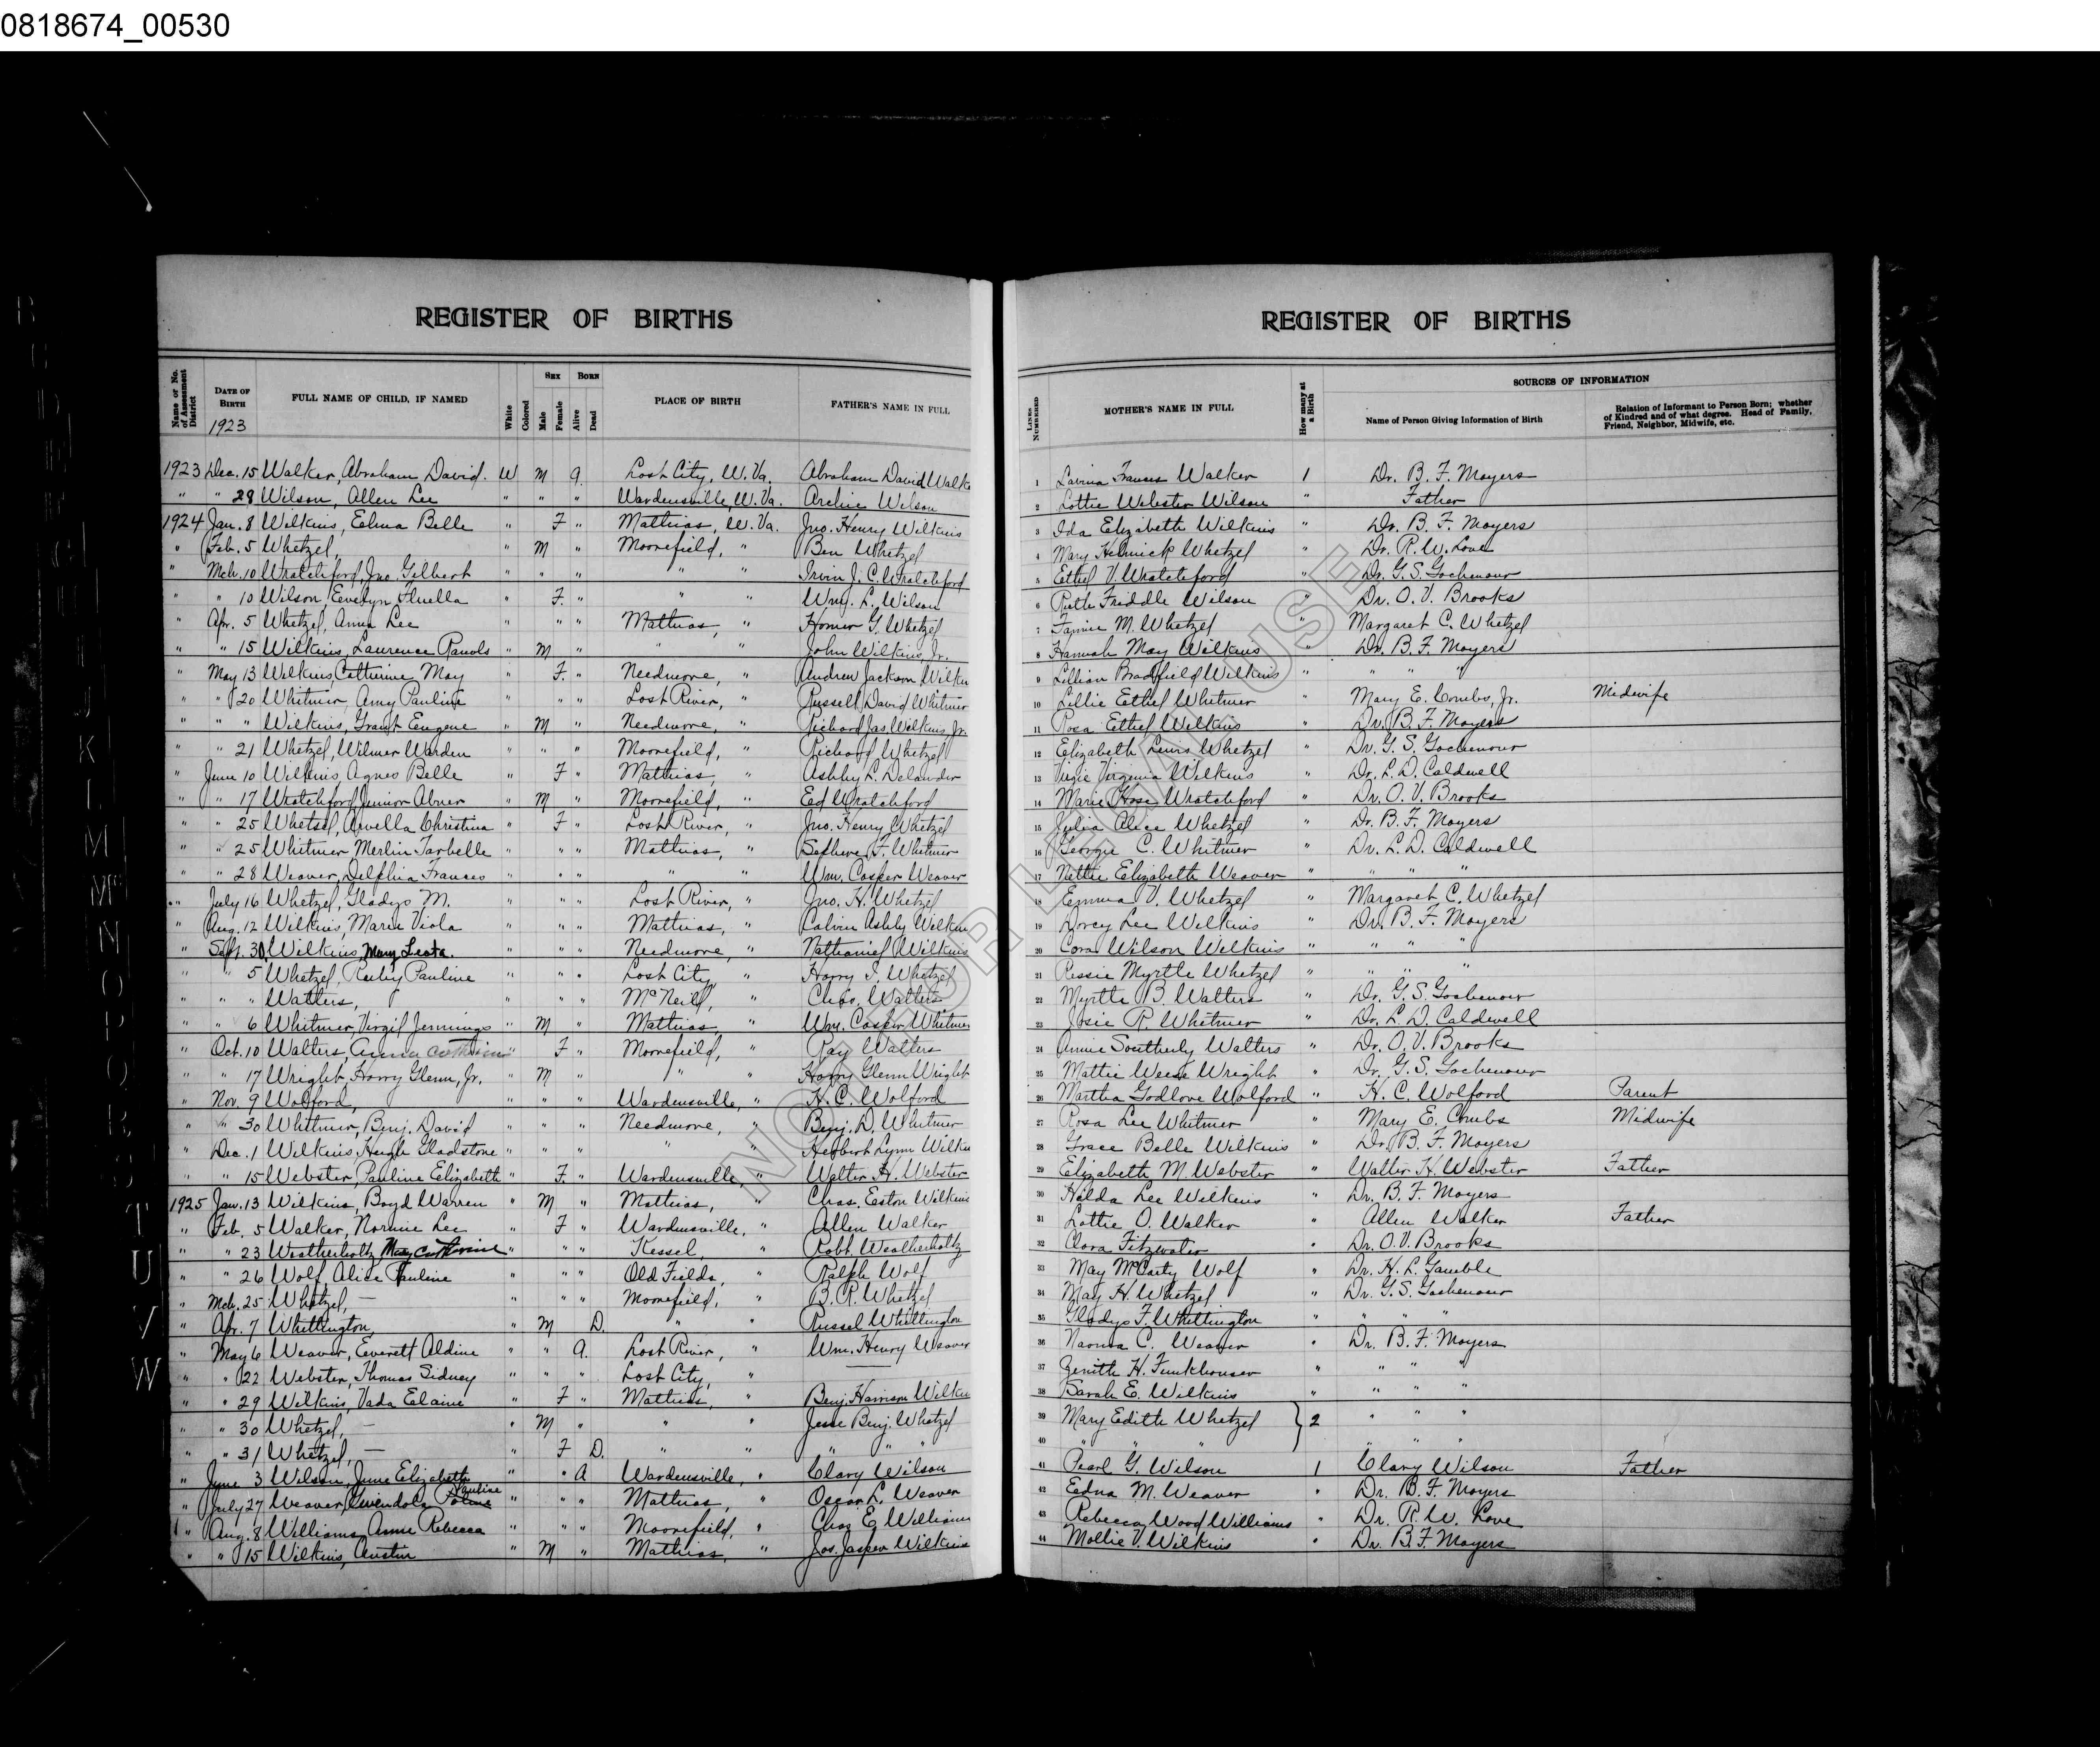 0818674_00530
REGISTER OF BIRTHS
Name or No. of Assessment District
DATE OF BIRTH
1923
FULL NAME OF CHILD, IF NAMED
White
Colored
SEX
Male
Female
BORN
Alive
Dead
PLACE OF BIRTH
FATHER'S NAME IN FULL
1923 Dec. 15 Walker, Abraham David. W M A. Lost City, W. Va. Abraham David Walke
" " 28 Wilson, Allen Lee " " " Wardensville, W. Va. Archie Wilson
1924 Jan. 8 Wilkins, Edna Belle " F " Mathias, W. Va. Jno. Henry Wilkins
" Feb. 5 Whetzel, " M " Moorefield, " Ben Whetzel
" Mch. 10 Wratchford, Jno. Gilbert " " " " " Irvin J. C. Wratchford
" " 10 Wilson, Evelyn " F. " " " Wm. L. Wilson
" Apr. 5 Whetzel, Anna Lee " " " Mathias, " Homer G. Whetzel
" " 15 Wilkins, Laurence " M " " " John Wilkins, Jr.
" May 13 Wilkins Catherine May " F. " Needmore, " Andrew Jackson Wilkin
" " 20 Whitmer, Amy Pauline " " Lost River, " Russell David Whitmer
" " " Wilkins, Grant Eugene " M " Needmore, " Richard Jas. Wilkins, Jr.
" " 21 Whetzel, Wilmer Warden " " " Moorefield, " Richard Whetzel
" June 10 Wilkins, Agnes Belle " F " Mathias, " Ashby L. Delawder
" " 17 Wratchford, Junior Abner " M " Moorefield, " Ed Wratchford
" " 25 Whetsel, Arvella Christina " F " Lost River, " Jno. Henry Whetzel
" " 25 Whitmer Merlin Tarbelle " " " Mathias, " F. Whitmer
" " 28 Weaver, Delphia Frances " " " " " Wm. Casper Weaver
" July 16 Whetzel, Gladys M. " " " Lost River, " Jno. H. Whetzel
" Aug. 12 Wilkins, Marie Viola " " " Mathias, " Calvin Ashby Wilkin
" Sept. 30 Wilkins, Mary Leota. " " " Needmore, " Nathaniel Wilkins
" " 5 Whetzel, Ruby Pauline " " " Lost City, " Harry Whetzel
" " " Walters, " " " McNeill, " Chas. Walters
" " 6 Whitmer, Virgil Jennings " M " Mathias, " Wm. Casper Whitmer
" Oct. 10 Walters, Anna Catherine " F " Moorefield, " Ray Walters
" " 17 Wright, Harry Glenn, Jr. " M " " " Harry Glenn Wright
" Nov. 9 Wolford, " " " Wardensville, " H. C. Wolford
" " 30 Whitmer, Benj. David " " " Needmore, " Benj. D. Whitmer
" Dec. 1 Wilkins, Hugh Gladstone " " " " " Herbert Lynn Wilkin
" " 15 Webster, Pauline Elizabeth " F. " Wardensville, " Walter H. Webster
1925 Jan. 13 Wilkins, Boyd Warren " M " Mathias, " Chas. Eston Wilkins
" Feb. 5 Walker, Normie Lee " F " Wardensville, " Allen Walker
" " 23 Weatherholtz Mary Catherine " " " Kessel, " Robt. Weatherholtz
" " 26 Wolf, Alice Pauline " " " Old Fields, " Ralph Wolf
" Mch. 25 Whetzel, — " " " Moorefield, " B. R. Whetzel
" Apr. 7 Whittington, " M D. " " Russel Whittington
" May 6 Weaver, Everett Aldine " " A. Lost River, " Wm. Henry Weaver
" " 22 Webster, Thomas Sidney " " " Lost City, " —
" " 29 Wilkins, Vada Elaine " F " Mathias, " Benj. Harrison Wilkin
" " 30 Whetzel, — " M " " " Jesse Benj. Whetzel
" " 31 Whetzel, — " F D. " " " " "
" June 3 Wilson, June Elizabeth " " A Wardensville, " Clary Wilson
" July 27 Weaver, Gwendola Pauline " " " Mathias, " Oscar L. Weaver
" Aug. 8 Williams, Annie Rebecca " " " Moorefield, " Chas E. Williams
" " 15 Wilkins, Austin " M " Mathias, " Jos. Jasper Wilkins
REGISTER OF BIRTHS
LINES NUMBERED
MOTHER'S NAME IN FULL
How many at a Birth
SOURCES OF INFORMATION
Name of Person Giving Information of Birth
Relation of Informant to Person Born; whether of Kindred and of what degree. Head of Family, Friend, Neighbor, Midwife, etc.
1 Lavina Frances Walker 1 Dr. B. F. Moyers
2 Lottie Webster Wilson " Father
3 Ida Elizabeth Wilkins " Dr. B. F. Moyers
4 Mary Helmick Whetzel " Dr. R. W. Love
5 Ethel V. Wratchford " Dr. G. S. Gochenour
6 Ruth Friddle Wilson " Dr. O. V. Brooks
7 Fannie M. Whetzel " Margaret C. Whetzel
8 Hannah May Wilkins " Dr. B. F. Moyers
9 Lillian Bradfield Wilkins " " " "
10 Lillie Ethel Whitmer " Mary E. Combs, Jr. Midwife
11 Roca Ethel Wilkins " Dr. B. F. Moyers
12 Elizabeth Lewis Whetzel " Dr. G. S. Gochenour
13 Virgie Virginia Wilkins " Dr. L. D. Caldwell
14 Marie Hose Wratchford " Dr. O. V. Brooks
15 Julia Alice Whetzel " Dr. B. F. Moyers
16 Georgie C. Whitmer " Dr. L. D. Caldwell
17 Nettie Elizabeth Weaver " " " "
18 Emma V. Whetzel " Margaret C. Whetzel
19 Dorcy Lee Wilkins " Dr. B. F. Moyers
20 Cora Wilson Wilkins " " " "
21 Ressie Myrtle Whetzel " " " "
22 Myrtle B. Walters " Dr. G. S. Gochenour
23 Josie R. Whitmer " Dr. L. D. Caldwell
24 Annie Southerly Walters " Dr. O. V. Brooks
25 Mattie Weese Wright " Dr. G. S. Gochenour
26 Martha Godlove Wolford " H. C. Wolford Parent
27 Rosa Lee Whitmer " Mary E. Combs Midwife
28 Grace Belle Wilkins " Dr. B. F. Moyers
29 Elizabeth M. Webster " Walter H. Webster Father
30 Hilda Lee Wilkins " Dr. B. F. Moyers
31 Lottie O. Walker " Allen Walker Father
32 Clora Fitzwater " Dr. O. V. Brooks
33 May McCarty Wolf " Dr. H. L. Gamble
34 May H. Whetzel " Dr. G. S. Gochenour
35 Gladys F. Whittington " " " "
36 Naoma C. Weaver " Dr. B. F. Moyers
37 Zenith H. Funkhouser " " " "
38 Sarah E. Wilkins " " " "
39 Mary Edith Whetzel } 2 " " "
40 " " " " " "
41 Pearl G. Wilson 1 Clary Wilson Father
42 Edna M. Weaver " Dr. B. F. Moyers
43 Rebecca Wood Williams " Dr. R. W. Love
44 Mollie V. Wilkins " Dr. B. F. Moyers
NOT FOR LEGAL USE